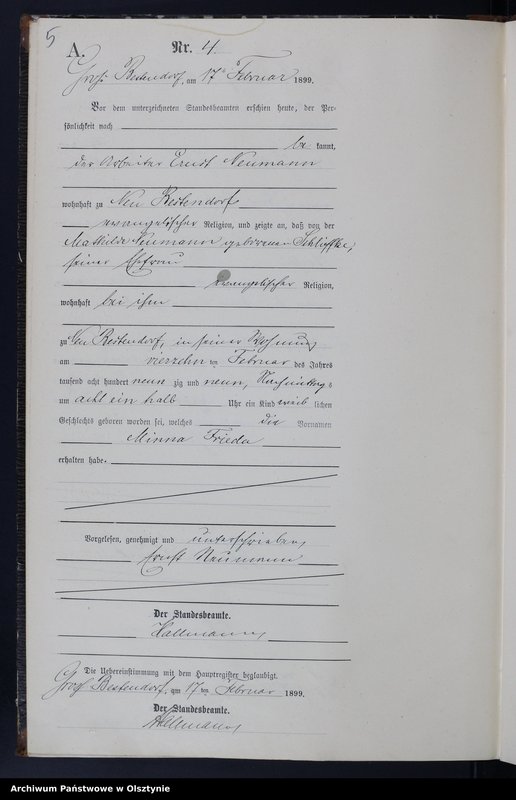 5
A.
Nr. 4.
Groß Bestendorf, am 17ten Februar 1899.
Vor dem unterzeichneten Standesbeamten erschien heute, der Per-
sönlichkeit nach
be kannt,
der Arbeiter Ernst Neumann
wohnhaft zu Neu Bestendorf
evangelischer Religion, und zeigte an, daß von der
Mathilde Neumann geborenen
seiner Ehefrau
evangelischer Religion,
wohnhaft bei ihm
zu Neu Bestendorf, in seiner Wohnung
am vierzehn ten Februar des Jahres
tausend acht hundert neun zig und neun, Nachmittags
um acht ein halb Uhr ein Kind weib lichen
Geschlechts geboren worden sei, welches die Vornamen
Minna Frieda
erhalten habe.
Vorgelesen, genehmigt und unterschrieben
Ernst Neumann
Der Standesbeamte.
Hallmann
Die Uebereinstimmung mit dem Hauptregister beglaubigt.
Groß Bestendorf, am 17 ten Februar 1899.
Der Standesbeamte.
Hallmann
Archiwum Państwowe w Olsztynie